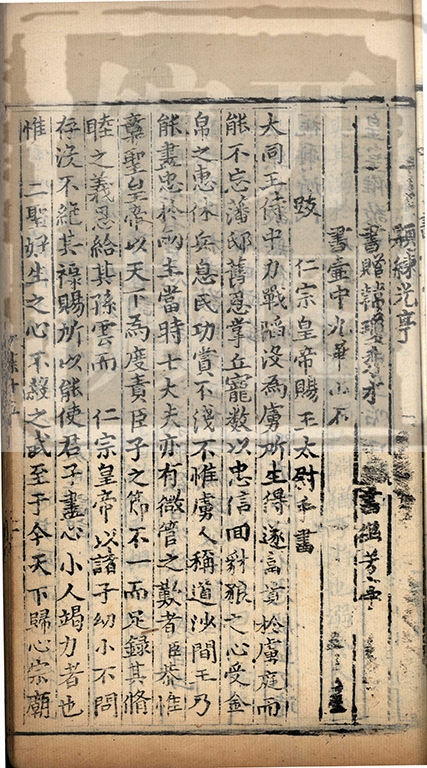 題練光亭
書贈韓瓊秀才 書幽芳亭
書壺中九華山石
跋 仁宗皇帝賜王太尉手書
大同王侍中力戰陷沒為虜所生得遂富貴於虜庭而
能不忘藩邸舊恩掌丘寵數以忠信回豺狼之心受金
帛之惠休兵息民功賞不淺不惟虜人稱道沙間王乃
能盡忠於兩主當時士大夫亦有微管之歎者臣恭惟
章聖皇帝以天下為度責臣子之節不一而足錄其脩
睦之義恩給其孫雲而 仁宗皇帝以諸子幼小不問
存沒不絕其祿賜所以能使君子盡心小人竭力者也
惟 二聖好生之心不殺之武至于今天下歸心宗廟